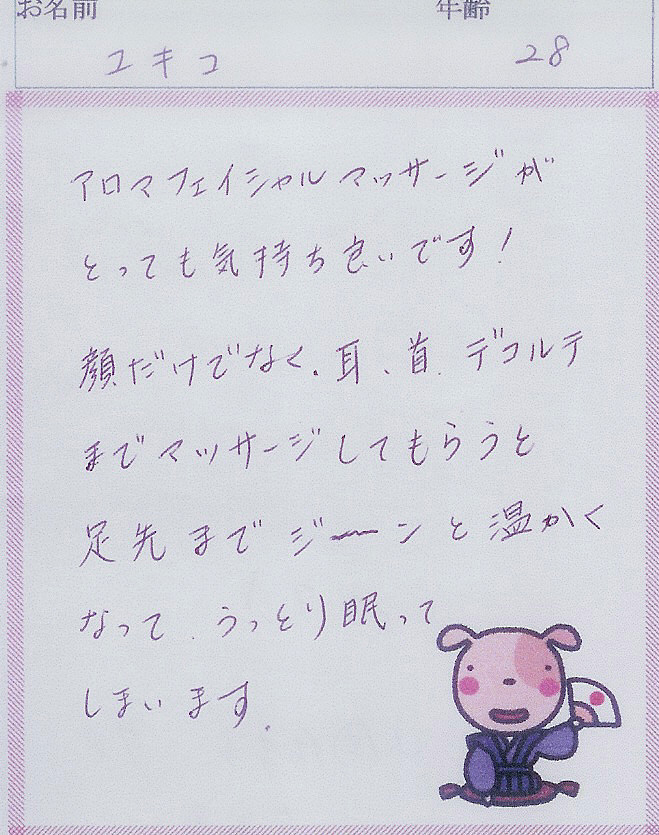 お名前 年齢
ユキコ 28
アロマフェイシャルマッサージが
とっても気持ち良いです！
顔だけでなく、耳、首、デコルテ
までマッサージしてもらうと
足先までジーンと温かく
なって、うっとり眠って
しまいます。